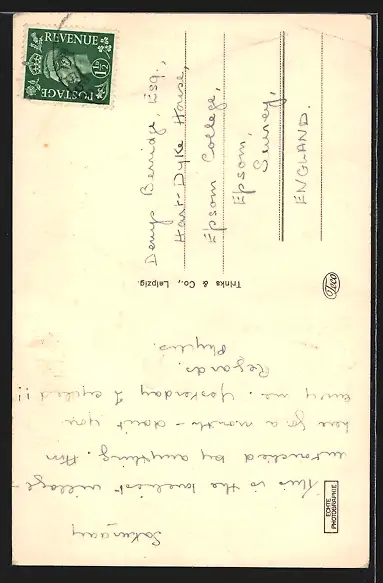 Saturday
This is the loveliest village -
untouched by anything. Am
here for a month - don't you
envy me. Yesterday I cycled !!
Regards.
Phyllis.
ECHTE
PHOTOGRAPHIE
Trinks & Co., Leipzig.
Denys Berridge, Esq.,
Hart-Dyke House,
Epsom College,
Epsom,
Surrey,
ENGLAND.
POSTAGE
1½D
REVENUE